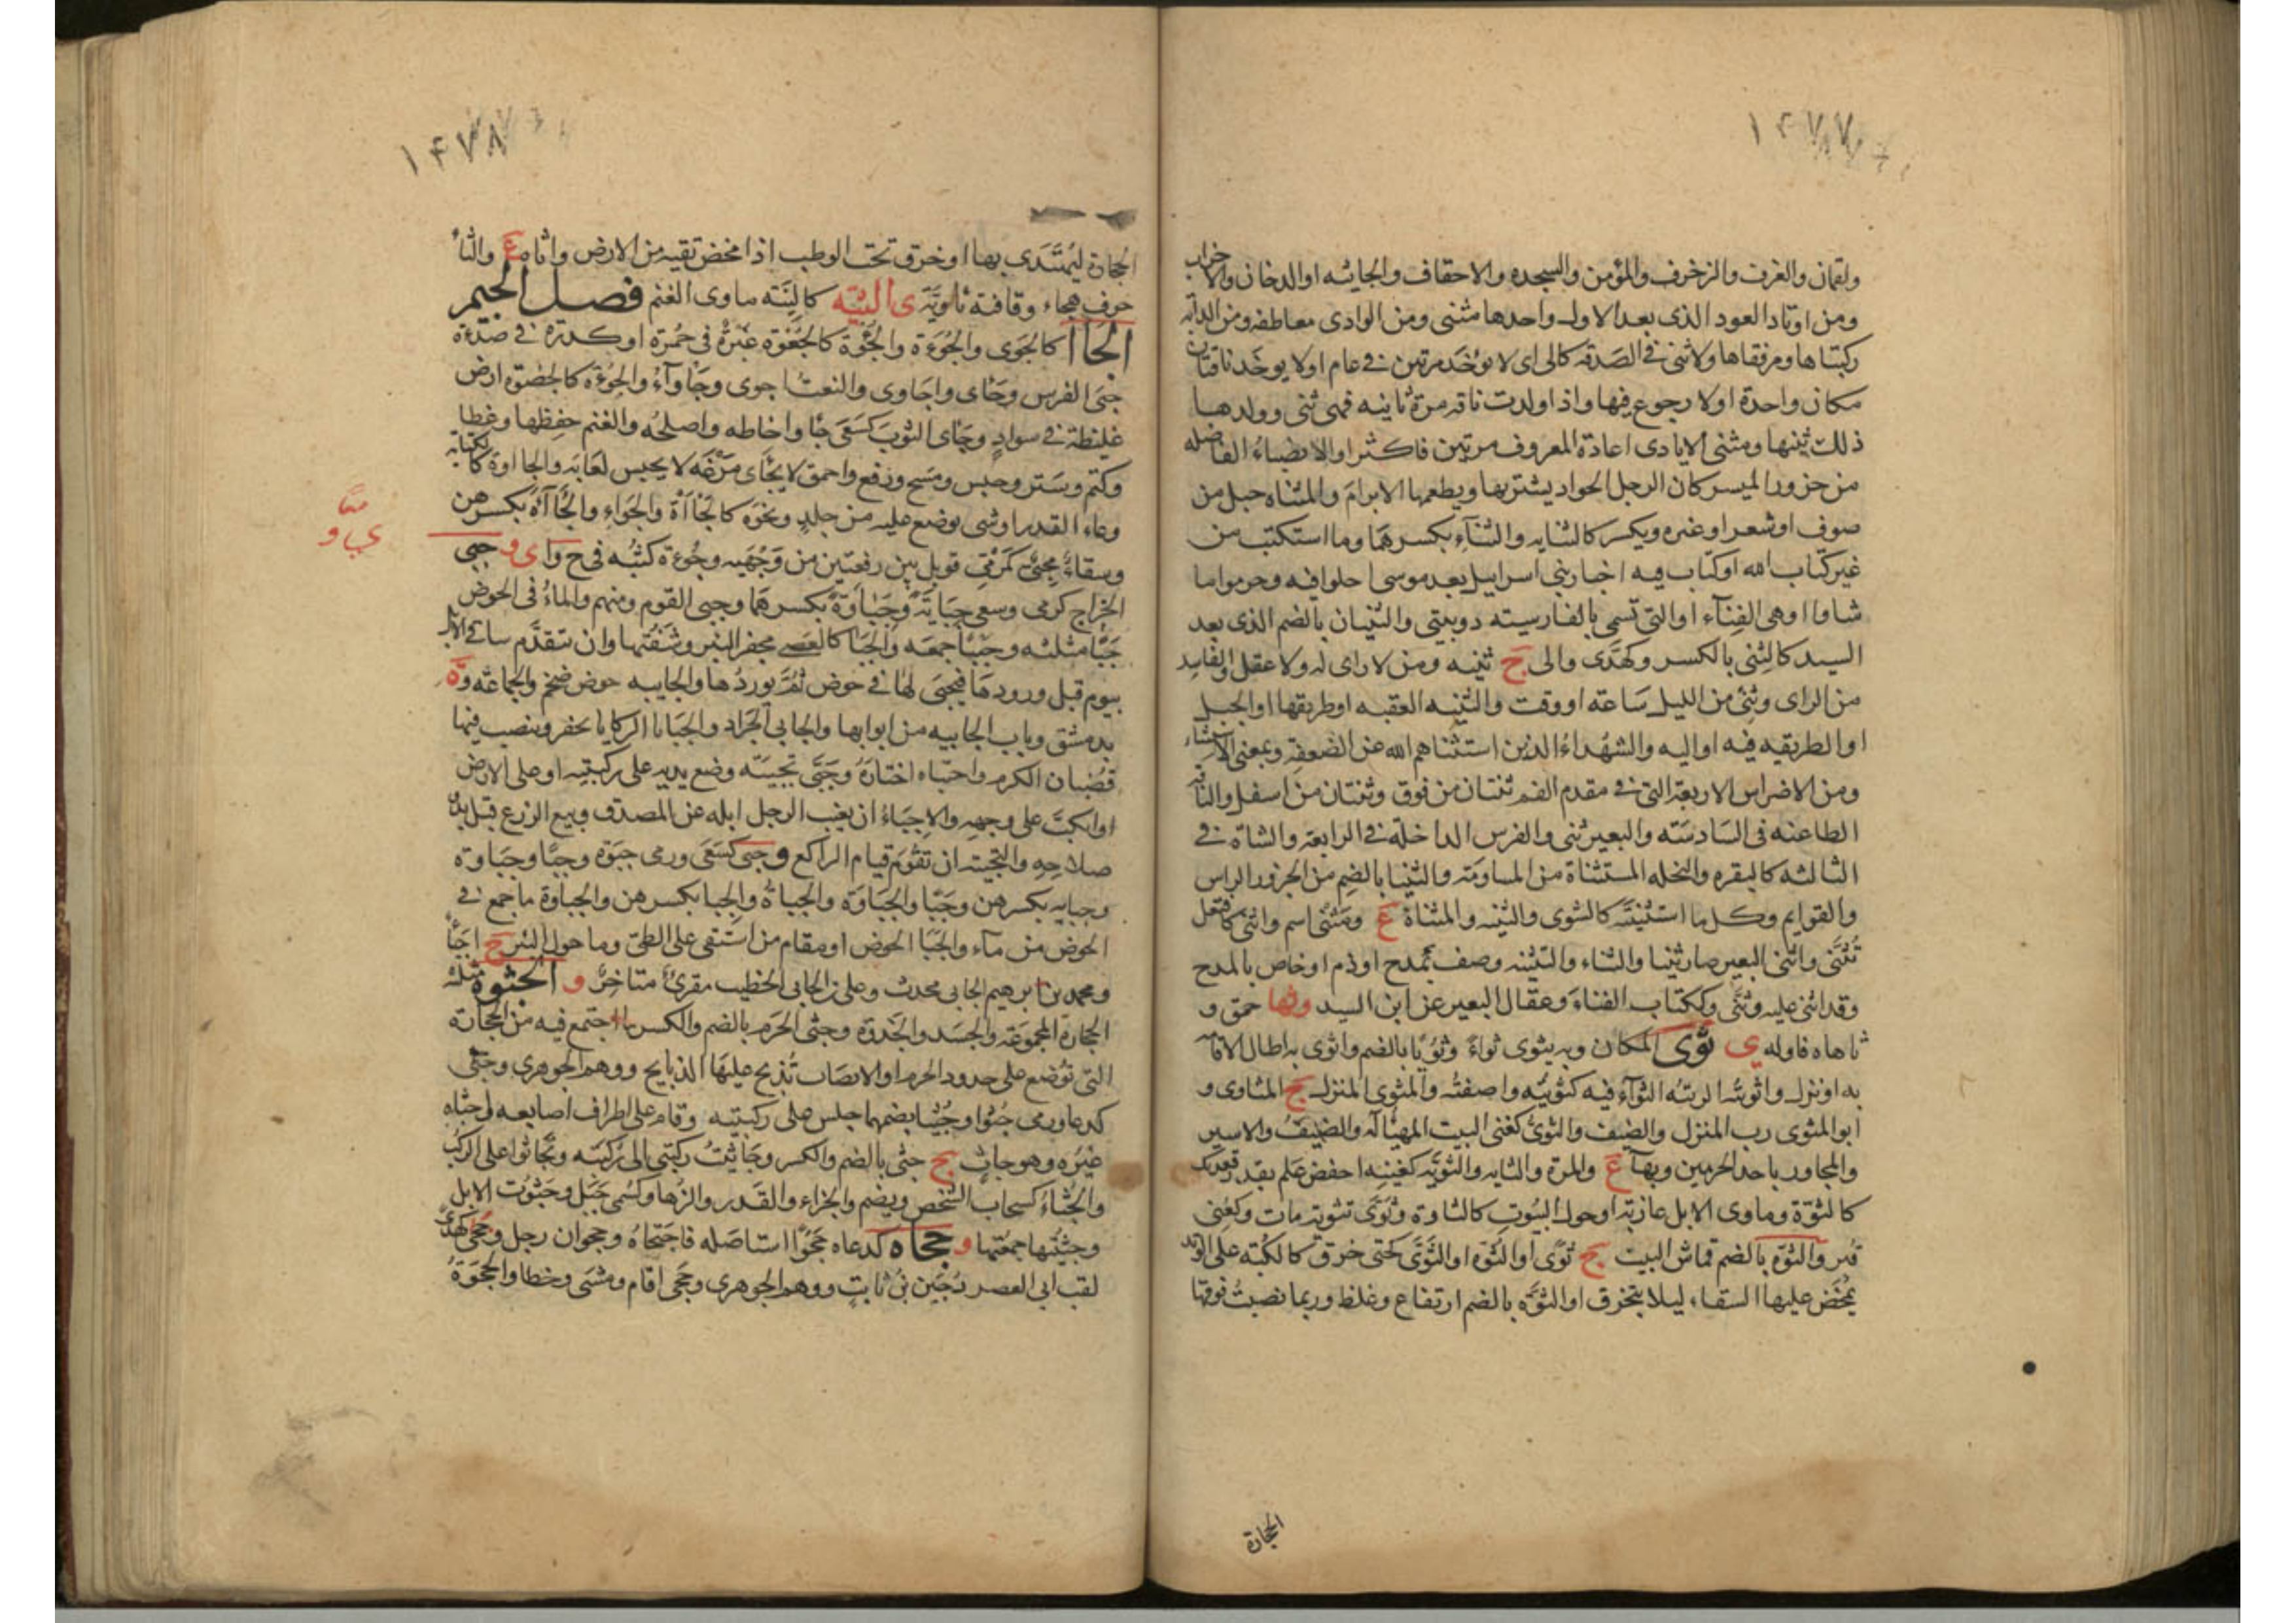 ١٤٧٧
ولقمان والغرف والزخرف والمؤمن والسجده والاحقاف والجاثيه او الدخان والاحزاب
ومن اوتاد العود الذى بعد الاول واحدها مثنى ومن الوادى معاطفه ومن الدابه
ركبتاها ومرفقاها ولا ثنى فى الصدقه كالى اى لا تؤخذ مرتين فى عام او لا يوخذ ناقتان
مكان واحدة او لا رجوع فيها واذا ولدت ناقه مرة ثانيه فهى ثنى وولدها
ذلك ثنيها ومثنى الايادى اعادة المعروف مرتين فاكثر او الانصباء الفاضله
من جزور الميسر كان الرجل الجواد يشتريها ويطعمها الابرام والمثناه حبل من
صوف او شعر او غيره ويكسر كالثنايه والثناء بكسرهما وما استكتب من
غير كتاب الله او كتاب فيه اخبار بنى اسرايل بعد موسى احلوا فيه وحرموا ما
شاوا او هى الغناء او التى تسمى بالفارسيته دوبيتى والثنيان بالضم الذى بعد
السيد كالثنى بالكسر وكهدى والى ج ثنيه ومن لا راى له ولا عقل والفاسد
من الراى وثنى من الليل ساعة او وقت والثنيه العقبه او طريقها او الجبل
او الطريقه فيه او اليه والشهداء الذين استثناهم الله عن الصعقه وبمعنى الاستثناء
ومن الاضراس الاربعة التى فى مقدم الفم ثنتان من فوق وثنتان من اسفل والناقه
الطاعنه فى السادسه والبعير ثنى والفرس الداخلة فى الرابعة والشاة فى
الثالثه كالبقره والنخله المستثناة من المساومة والثنيا بالضم من الجزور الراس
والقوايم وكل ما استثنيته كالثنوى والثنيه والمثناة ع ومثنى اسم واثنى كافتعل
تثنى واثنى البعير صار ثنيا والثناء والتثنيه وصف بمدح او ذم او خاص بالمدح
وقد اثنى عليه وثنى وككتاب الفناء وعقال البعير عن ابن السيد وثها حمق و
ثاهاه قاوله ى ثوى المكان وبه يثوى ثواء وثويا بالضم واثوى به اطال الاقامه
به او نزل واثويته الزمته الثواء فيه كثويته واضفته والمثوى المنزل ج المثاوى و
ابو المثوى رب المنزل والضيف والثوى كغنى البيت المهيا له والضيف والاسير
والمجاور باحد الحرمين وبهاء ع والمرة والثايه والثويه كغنيه احفض علم بقدر قعدتك
كالثوة وماوى الابل عازبة او حول البيوت كالثاوة وثوى تثوية مات وكعنى
قبر والثوه بالضم قماش البيت ج ثوى او الثوه او الثوى كحتى خرق كالكبة على الوتد
يمخض عليها السقاء ليلا يتخرق او الثوه بالضم ارتفاع وغلظ وربما نصبت فوقها
الحجارة
١٤٧٨
الحجارة ليهتدى بها او خرق تحت الوطب اذا مخض تقيه من الارض واثا مع والثا
حرف هجاء وقافية ثاوية ى الثيه كالنيه ماوى الغنم فصل الجيم
الجاا كالجوى والجوءة والجؤة كالجعوه غبرة فى حمرة او كدرة فى صداة
جئى الفرس وجاى واجاوى والنعت اجوى وجاواء والجؤه كالجعوه ارض
غليظة فى سواد وجاى الثوب كسعى جا واخاطه واصلحه والغنم حفظها وغطا
وكتم وستر وحبس ومسح ورقع واحمق لا يجاى مرغه لا يحبس لعابه والجااوة ككتابه
وعاء القدر او شى يوضع عليه من جلد ونحوه كالجااة والجواء والجاآة بكسرهن
وسقاء مجئى كمرمى قوبل بين رقعتين من وجهيه وجوءة كثبه فى ج و اى و جبى
الخراج كرمى وسعى جباية وجباوة بكسرهما وجبى القوم ومنهم والماء فى الحوض
جبا مثلثه وجبيا جمعه والجبا كالعصى محفر البئر وشفتها وان يتقدم ساقى الابل
بيوم قبل ورودها فيجبى لها فى حوض ثم يوردها والجابيه حوض ضخم والجماعة وة
بدمشق وباب الجابيه من ابوابها والجابى الجراد والجبايا الركايا تحفر وينصب فيها
قضبان الكرم واجتباه اختاره وجبى تجبيه وضع يديه على ركبتيه او على الارض
او انكب على وجهه والاجباء ان يغيب الرجل ابله عن المصدق وبيع الزرع قبل بدو
صلاحه والتجبيه ان تقوم قيام الراكع و جبى كسعى ورمى جبوه وجبا وجباوة
وجبايه بكسرهن وجبا والجباوة والجباة والجبا بكسرهن والجباوة ما جمع فى
الحوض من ماء والجبا الحوض او مقام من استقى على الطى وما حول البئر ج اجبا
ومحمد بن ابرهيم الجابى محدث وعلى بن الجابى الخطيب مقرئ متاخر و الجثوة مثلثه
الحجارة المجموعة والجسد والجذوة وجثى الحرم بالضم والكسر ما اجتمع فيه من الحجارة
التى توضع على حدود الحرم او الانصاب تذبح عليها الذبايح ووهم الجوهرى وجثى
كدعا ورمى جثوا وجثيا بضمهما جلس على ركبتيه وقام على اطراف اصابعه واجثاه
غيره وهو جاث ج جثى بالضم والكسر وجاثيت ركبتى الى ركبته وتجاثوا على الركب
والجثاء كسحاب الشخص ويضم والجزاء والقدر والزهاء وكسمى جبل وجثوت الابل
وجثيتها جمعتها و جحاه كدعاه جحوا استاصله فاجتحاه وجحوان رجل وجحى كهدى
لقب ابى الغصن دجين بن ثابت ووهم الجوهرى وجحى اقام ومشى وخطا والجحوة